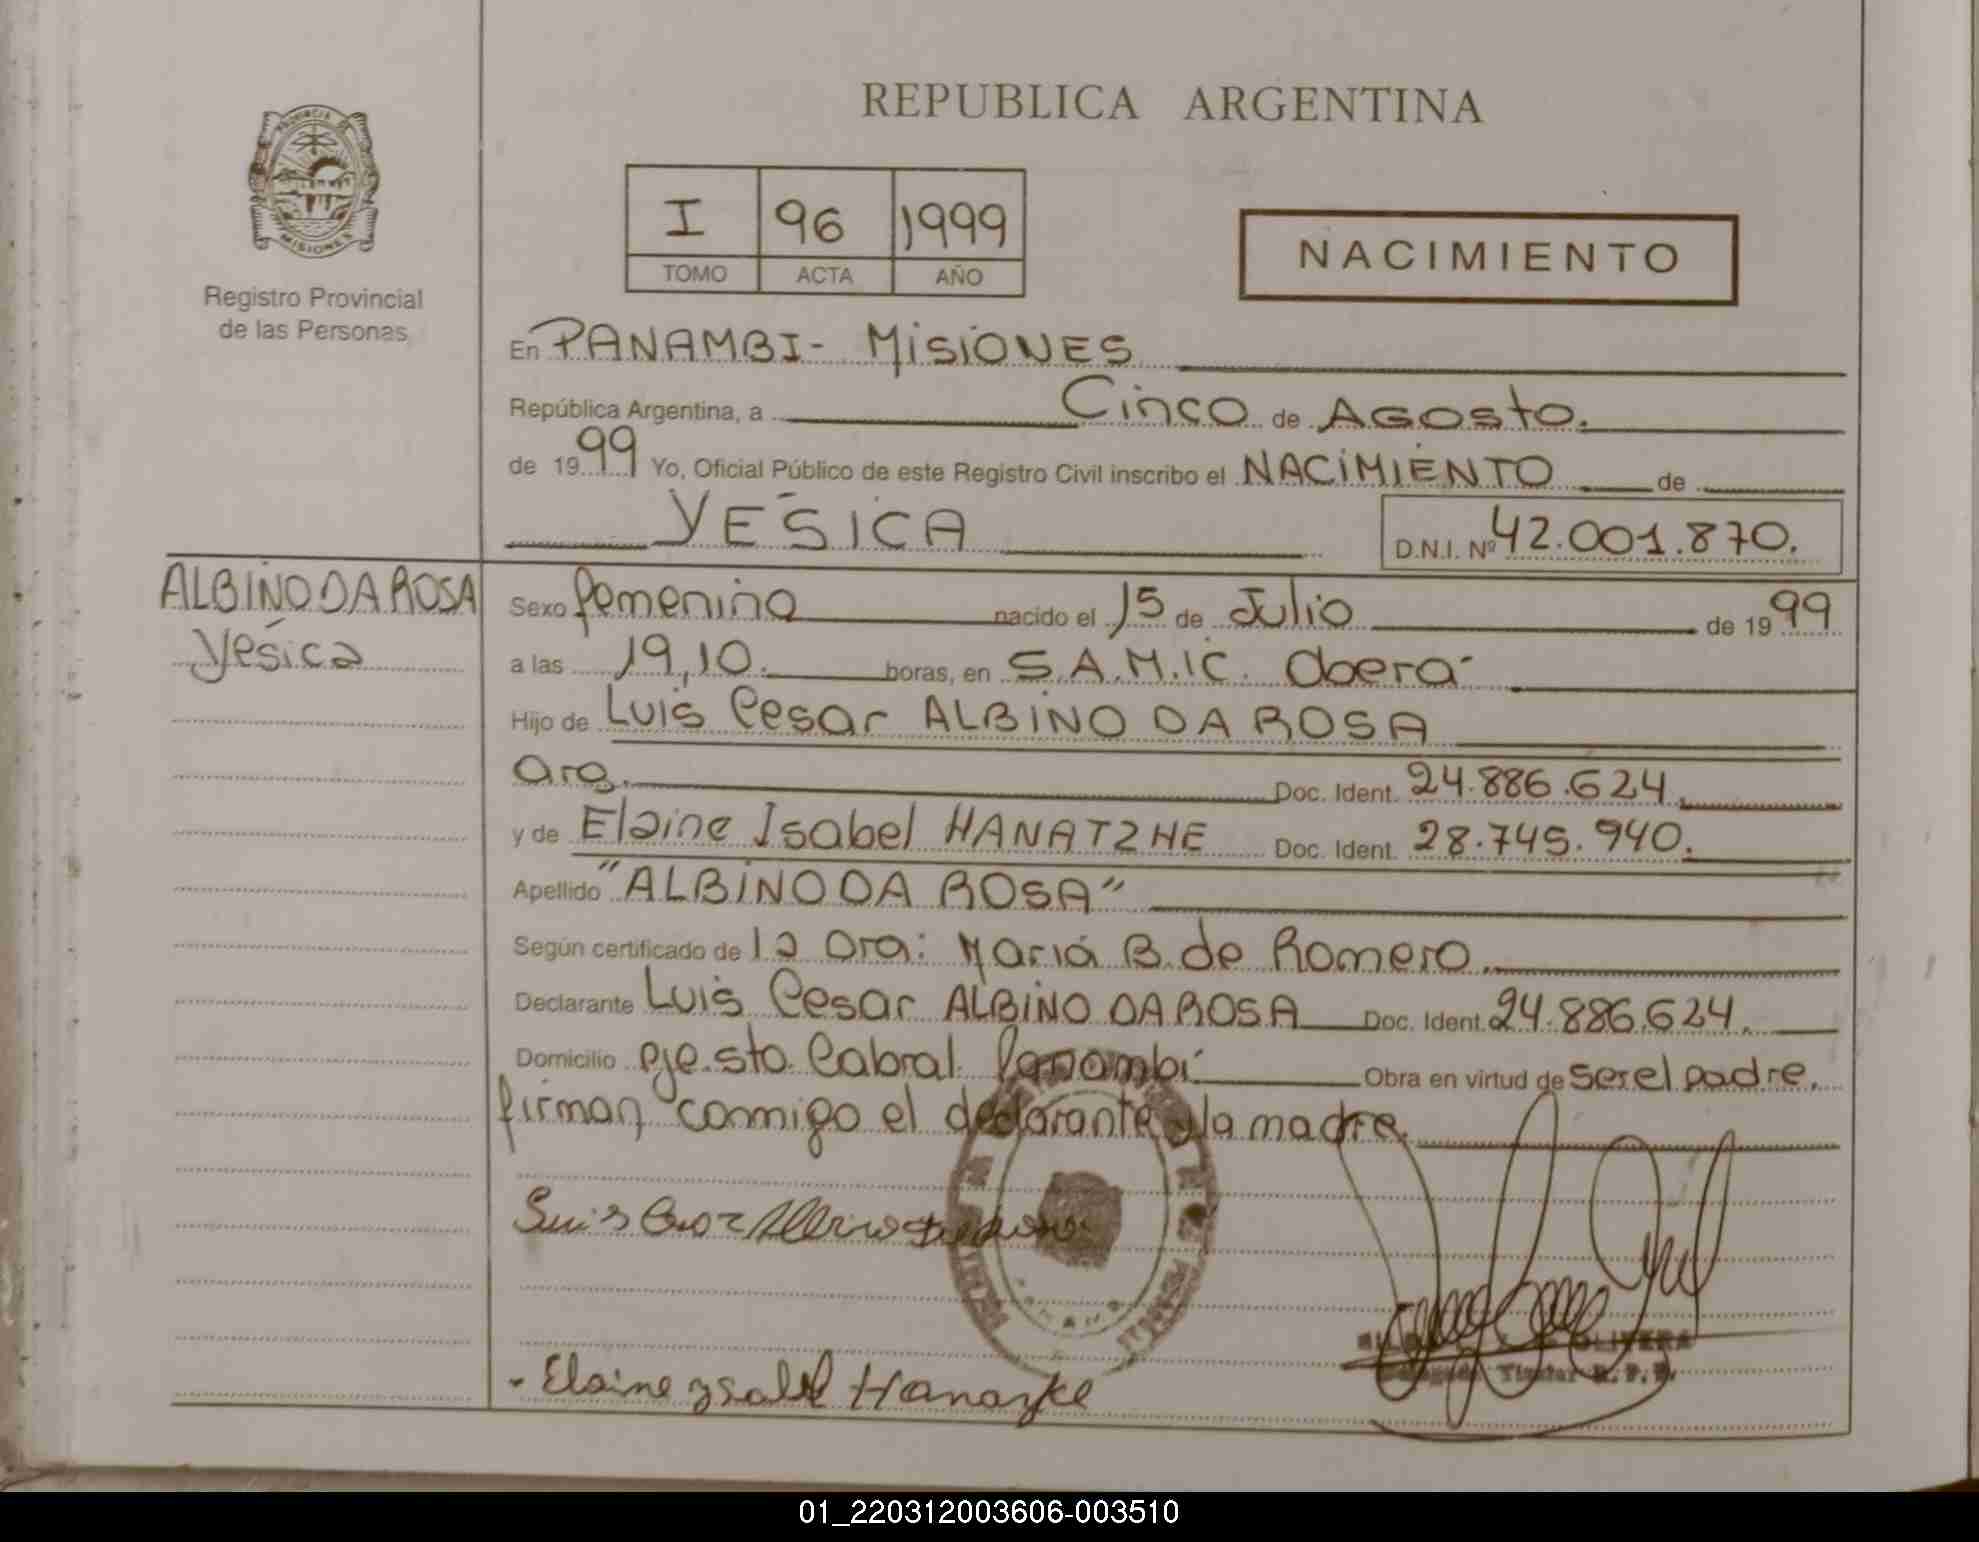 REPUBLICA ARGENTINA
PROVINCIA DE
MISIONES
Registro Provincial
de las Personas
I 96 1999
TOMO ACTA AÑO
NACIMIENTO
En PANAMBI- MISIONES
República Argentina, a Cinco de AGOSTO.
de 1999 Yo, Oficial Público de este Registro Civil inscribo el NACIMIENTO de
YESICA D.N.I. Nº 42.001.870.
ALBINO DA ROSA
Yesica
Sexo femenino nacido el 15 de Julio de 1999
a las 19,10. horas, en S.A.M.IC. Oberá-
Hijo de Luis Cesar ALBINO DA ROSA
arg. Doc. Ident. 24.886.624
y de Elaine Isabel HANATZHE Doc. Ident. 28.745.940.
Apellido "ALBINO DA ROSA"
Según certificado de la Dra: María B. de Romero.
Declarante Luis Cesar ALBINO DA ROSA Doc. Ident. 24.886.624.
Domicilio Pje. Sto. Cabral. Panambí Obra en virtud de ser el padre.
firman conmigo el declarante y la madre.
Elaine Ysabel
OLIVERA
Titular R.P.P.
01_220312003606-003510